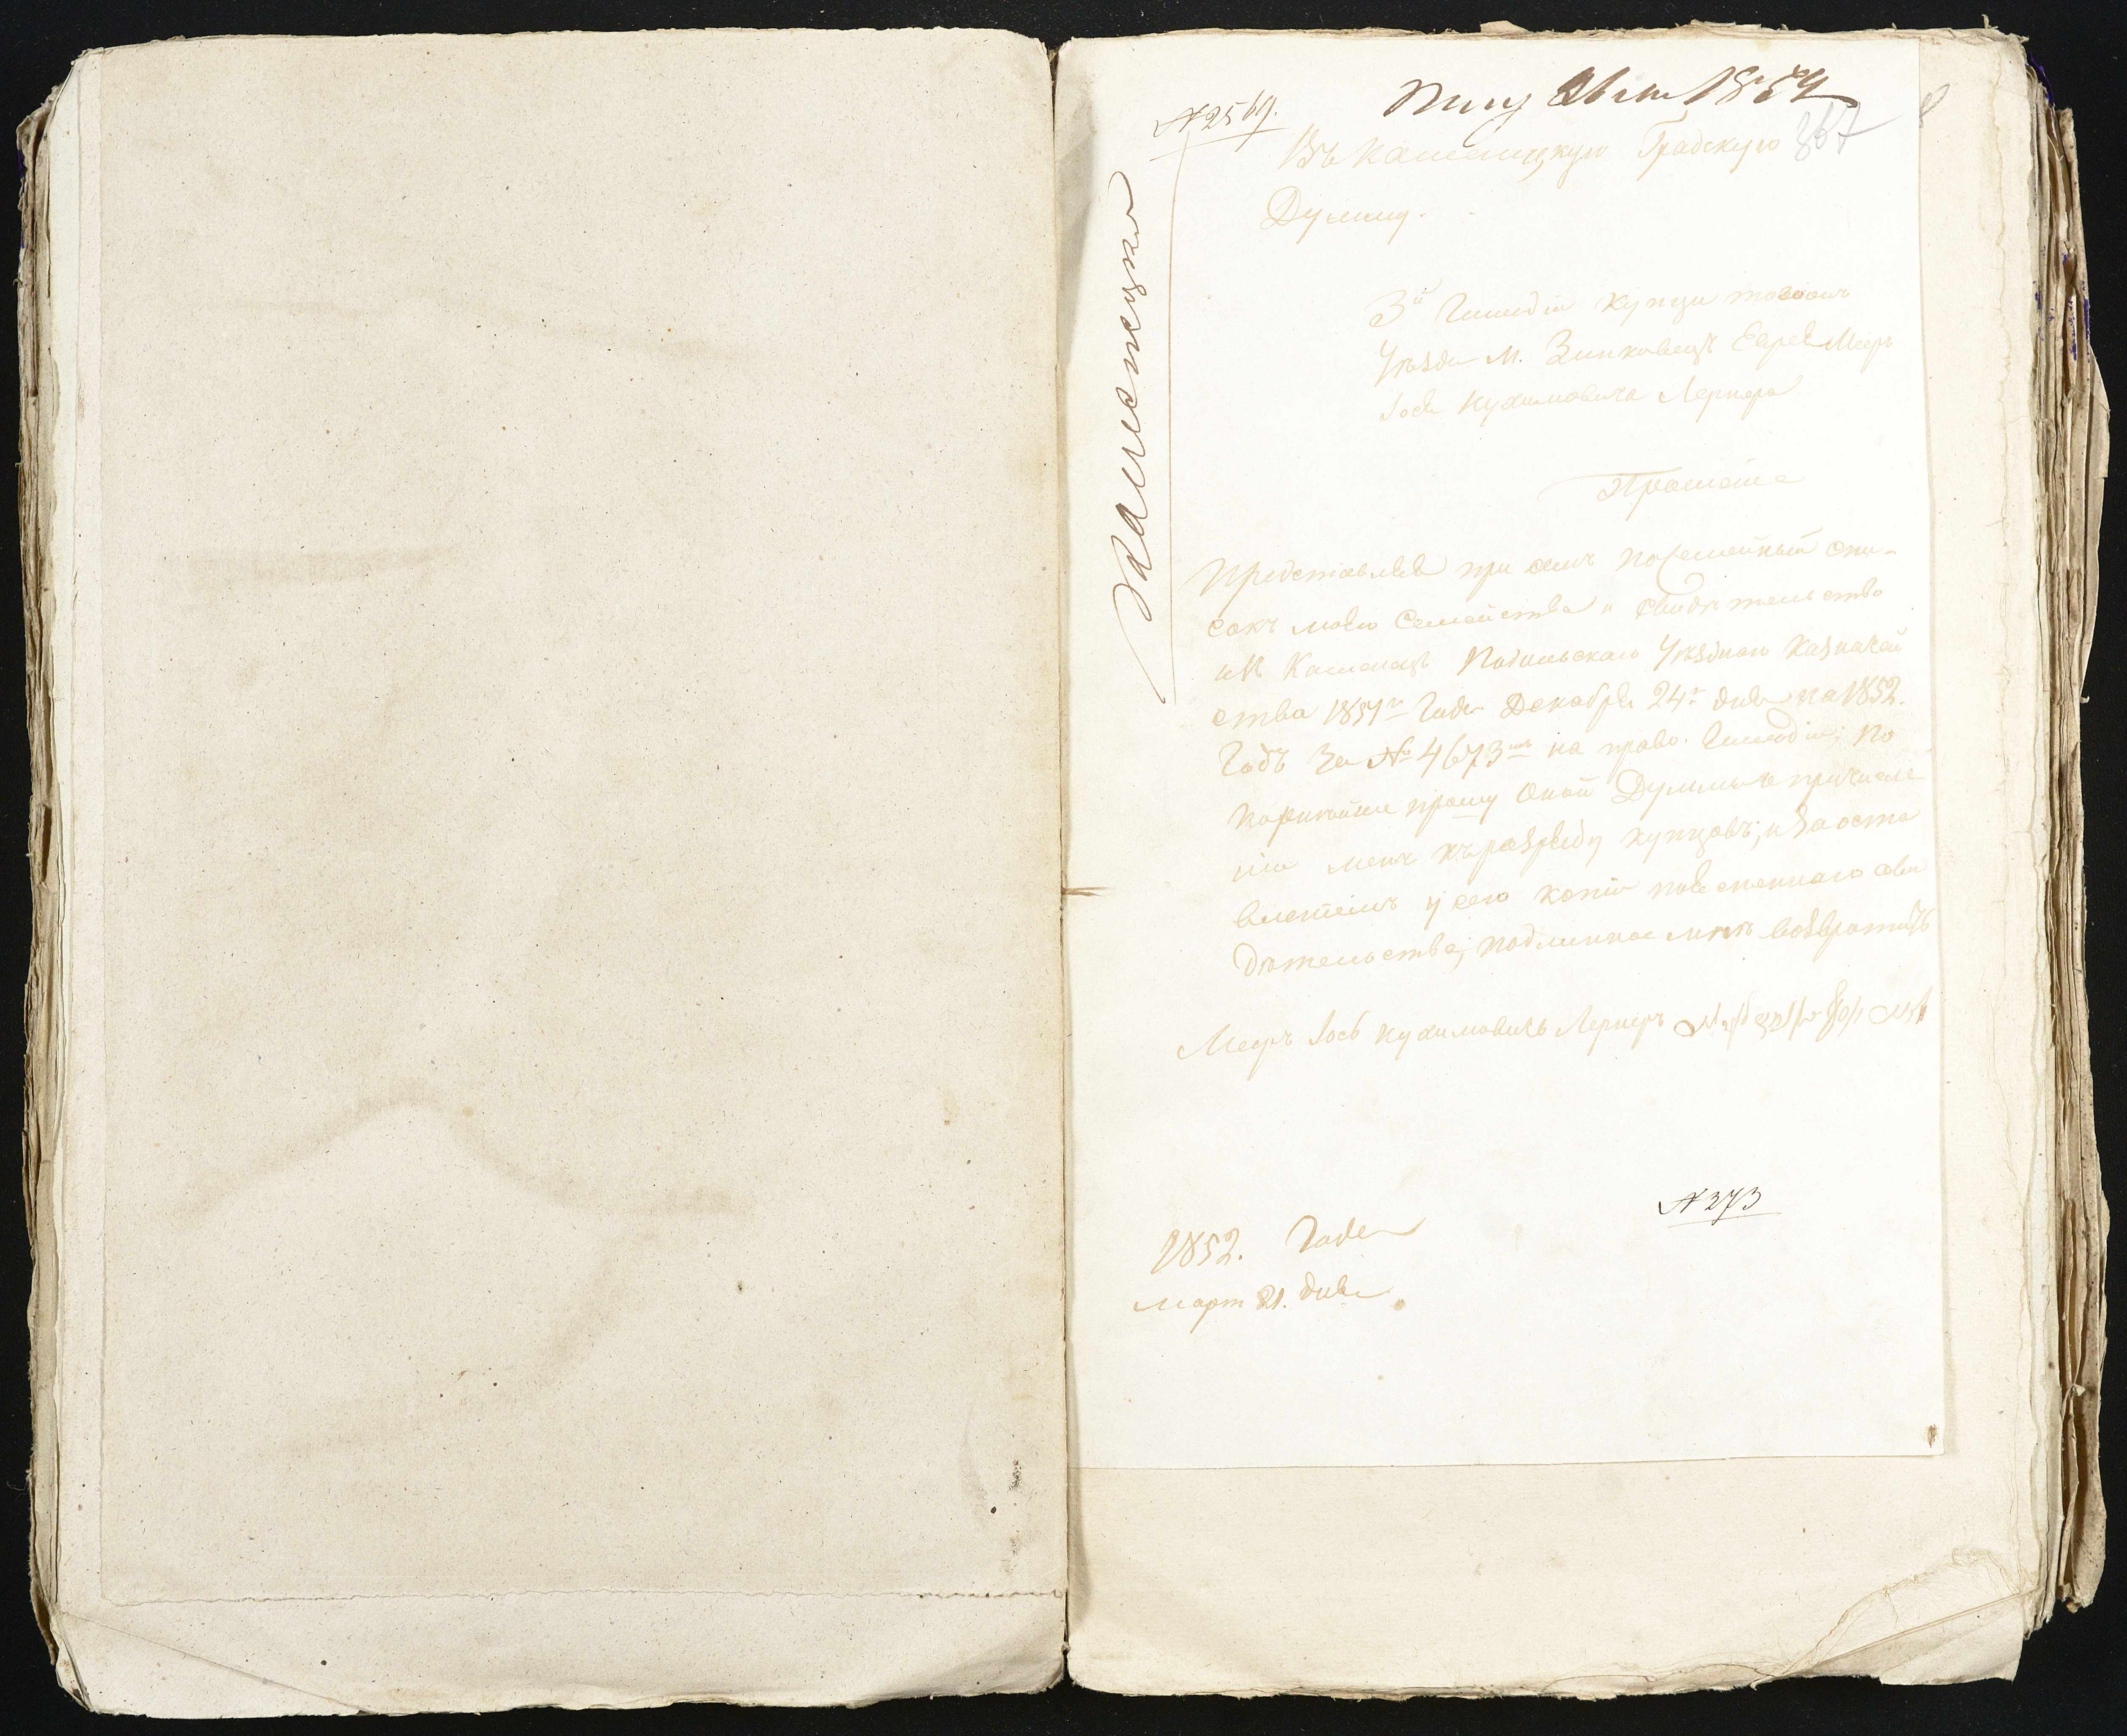 № 2569.
367
Въ Каменецкую Градскую
Думу.
Каменецкаго
3й Гильдіи Купца
Уѣзда М. Зинковецъ Еврея Меера
Іося Нухимовича Лернера
Прошеніе
Представляя при семъ посемейный спи-
сокъ моего Семейства и свидѣтельство
изъ Каменецъ Подольскаго Уѣзднаго Казначей
ства 1851го Года Декабря 24го дня на 1852.
Годъ За № 4673мъ на право Гильдіи; По
корнѣйше прошу Оной Думы о причисле
ніи меня къ разряду купцовъ; и За оста
вленіемъ у сего копіи свѣ
дѣтельства; подлинное мнѣ возвратить
Мееръ Іось Нухимовичъ Лернеръ
№ 373
1852. Года
Март 21. дня